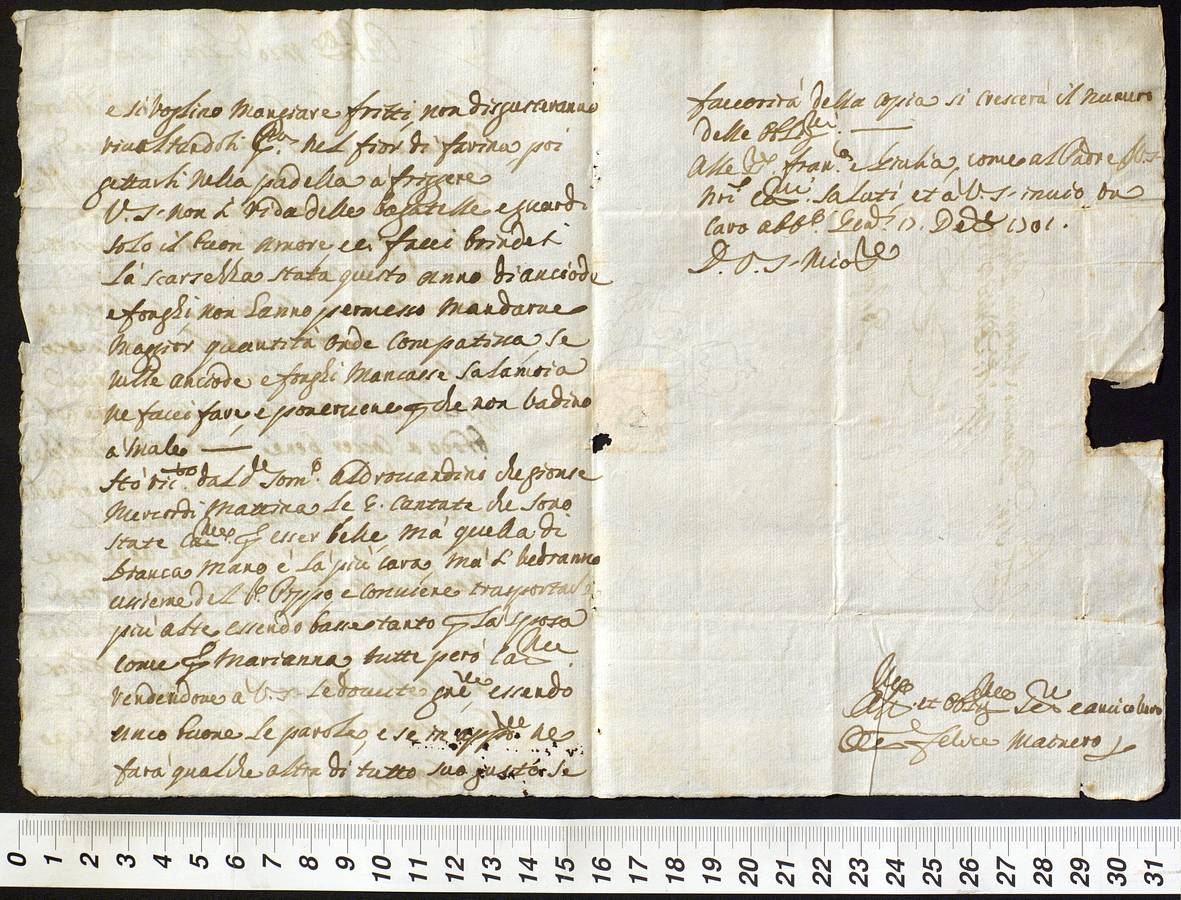 e si voglino mangiare fritti, non disgusteranno
rivoltandoli nel fior di farina, poi
gettarli nella padella à friggere
V. S. non rida delle bagatelle e guardi
solo il buon amore, e facci brindesi
La scarsezza stata questo anno di anciode
e fonghi non hanno permesso mandarne
maggior quantità onde compatisca se
sulle anciode e fonghi mancasse salamoia
ne facci fare, e ponervene che non vadino
à male
Stò dal Drovandino che gionse
Mercordì mattina le cantate che sono
state esser belle mà quella di
bianca mano è la più cara, mà vedranno
assieme del e conviene trasportar
più alte essendo basse tanto la sposa
come Marianna, tutte però
rendendone à V. S. le dovute essendo
anco buone le parole, e se ne
farà qualche altra di tutto suo gusto se
favorirà della copia si crescerà il numero
delle
Alle e Giulia, come al Padre
saluti et à V. S. invio un
caro 1701.
D. V. S.
et
Felice Mainero
0 1 2 3 4 5 6 7 8 9 10 11 12 13 14 15 16 17 18 19 20 21 22 23 24 25 26 27 28 29 30 31